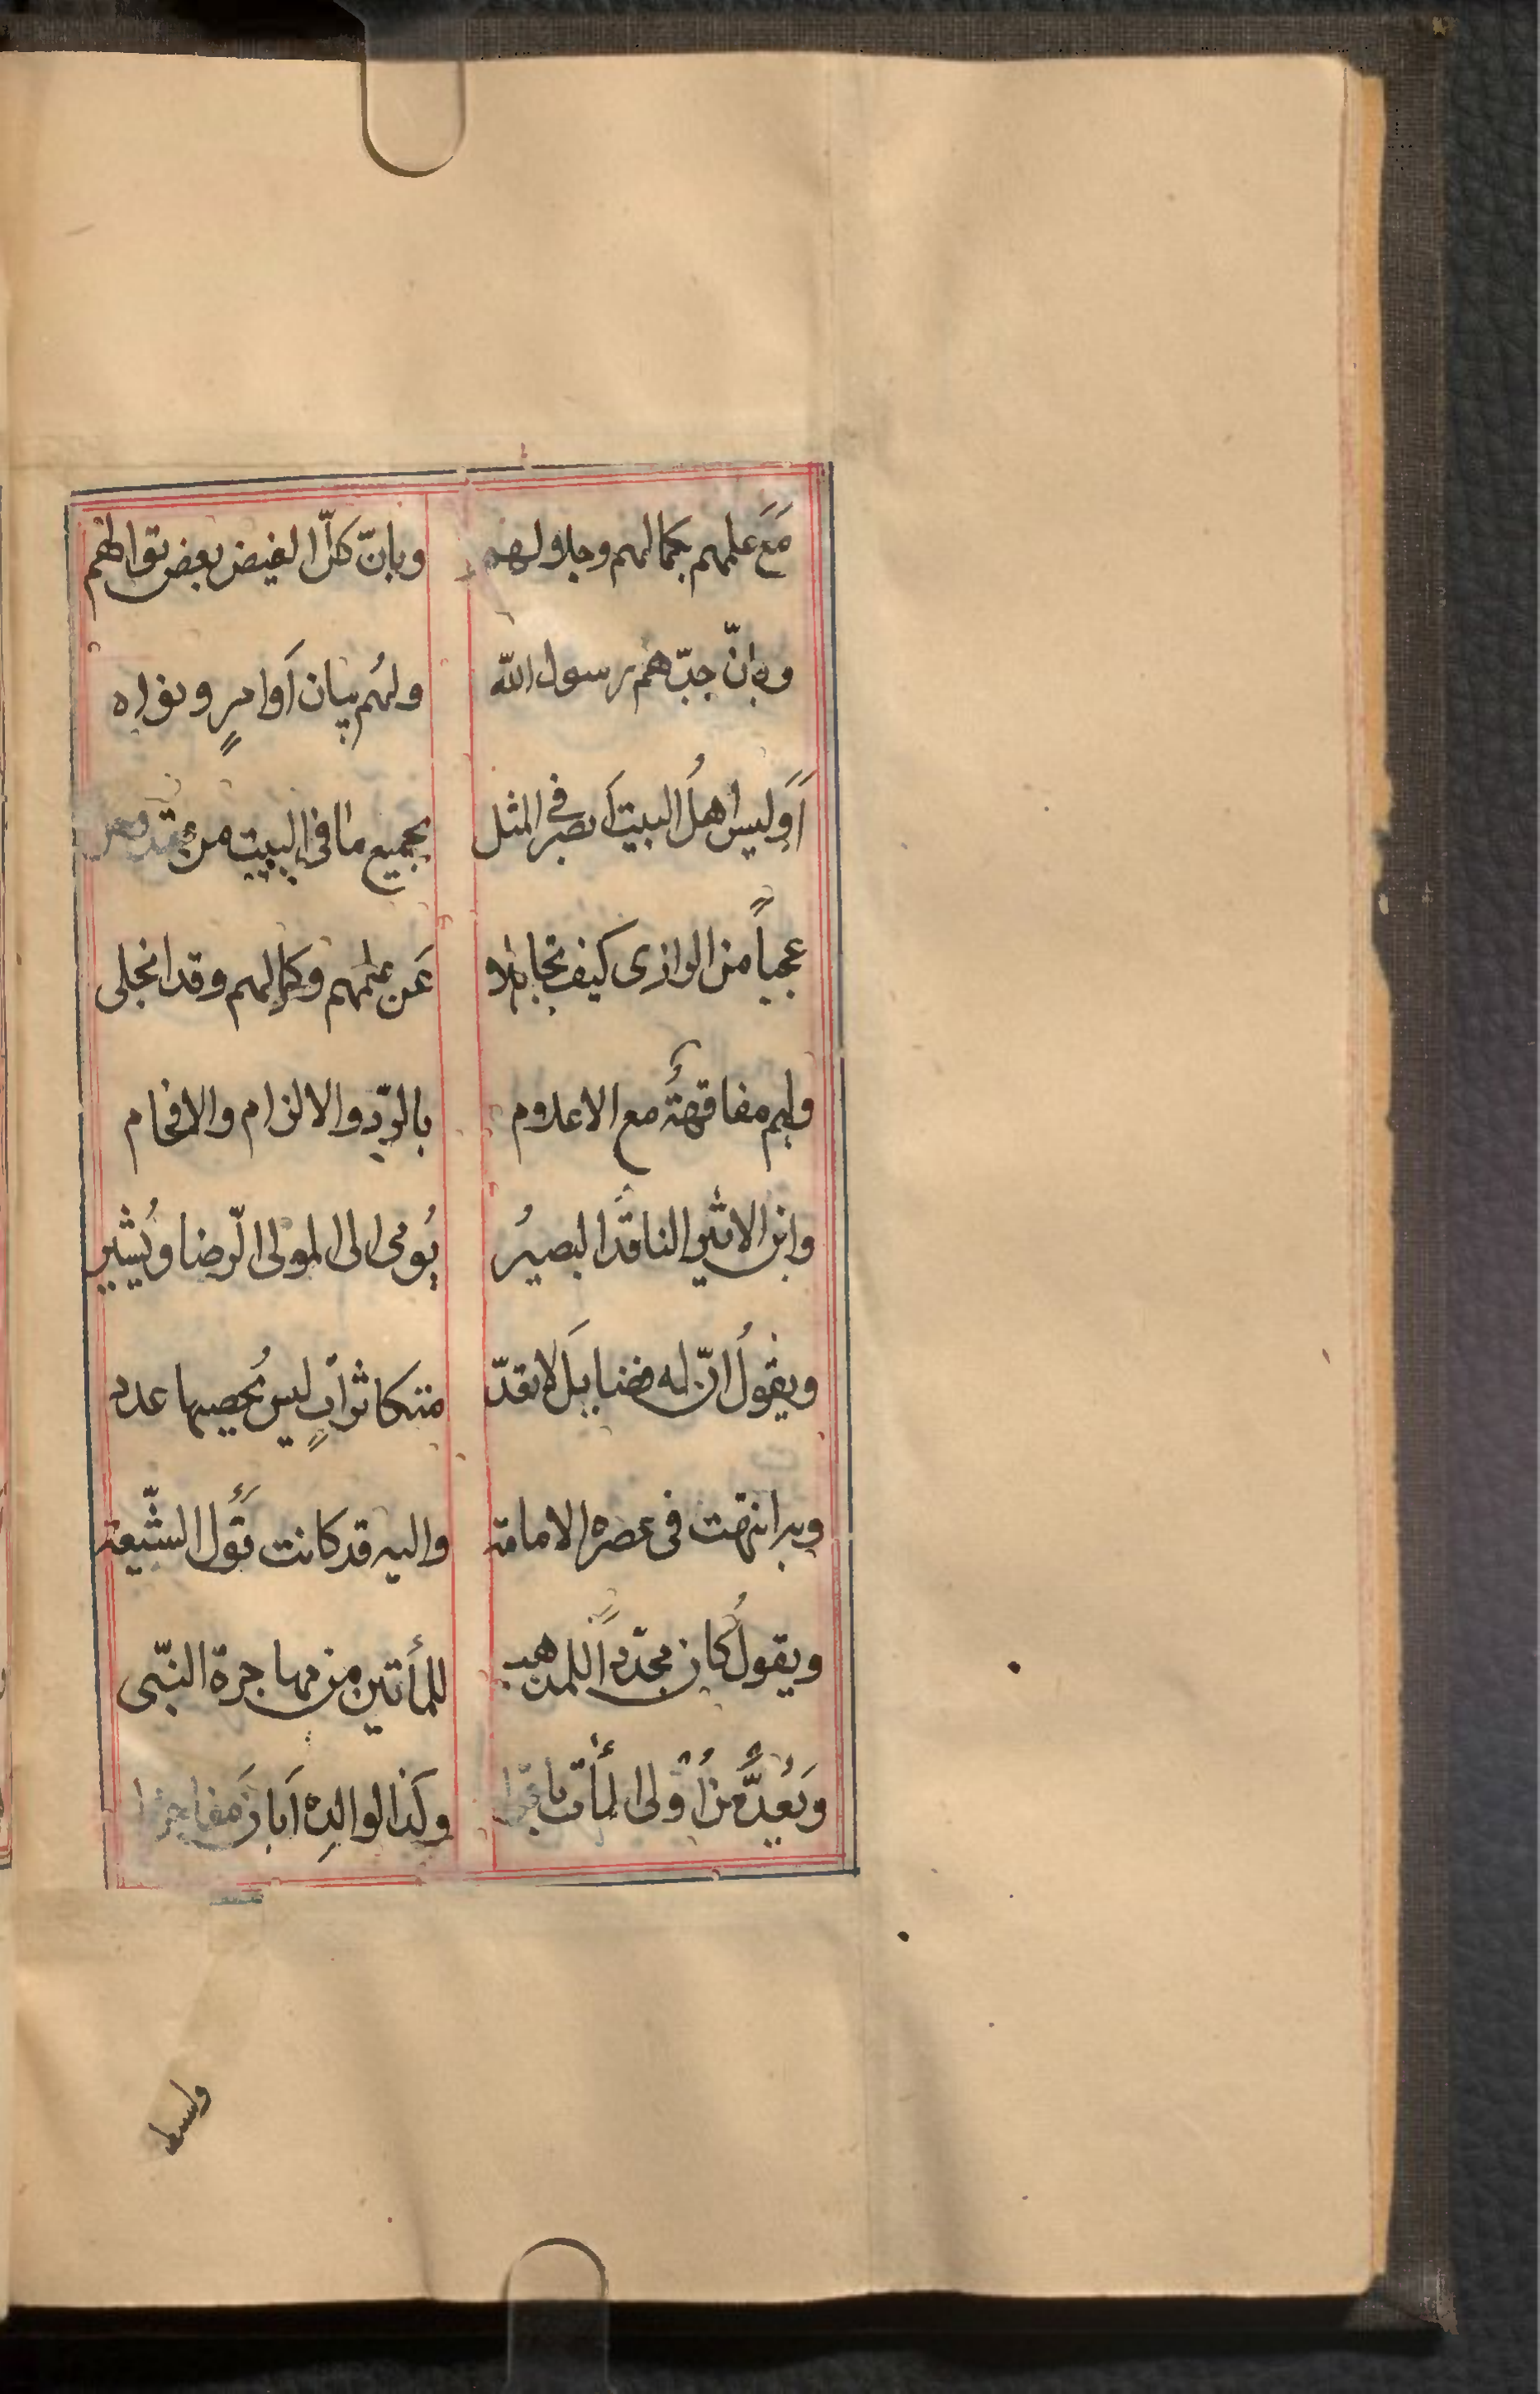 مَعَ علمهم بكمالهم وجلالهم وبانّ كلّ الفيض بعض نوالهم
وبانّ جدّهم رسول الله ولهُم بيان اَوامرٍ ونواه
اَوَليس اهلُ البيت اَبصر فى المثل بجميع ما فى البيت من
عجباً من الرازى كيف تجاهلا عَن علمهم وكمالهم وقد انجلى
ولهم مفاقهةٌ مع الاعلام بالردّ والالزام والافحام
وابن الاثير الناقدُ البصيرُ يُومى الى المولى الرّضا ويُشير
ويقولُ انّ له فضايلَ لا تعدّ متكاثراتٍ ليس يُحصيها عدد
وبه انتهت فى عصره الامامة واليه قد كانت تَؤل الشّيعة
ويقولُ كان مجدّداً للمذهب للمأتين من مهاجرة النّبى
وَيَعُدُّ من اُولى المأت باقرا وكَذا لوالدِه اَبانَ مفاخرا